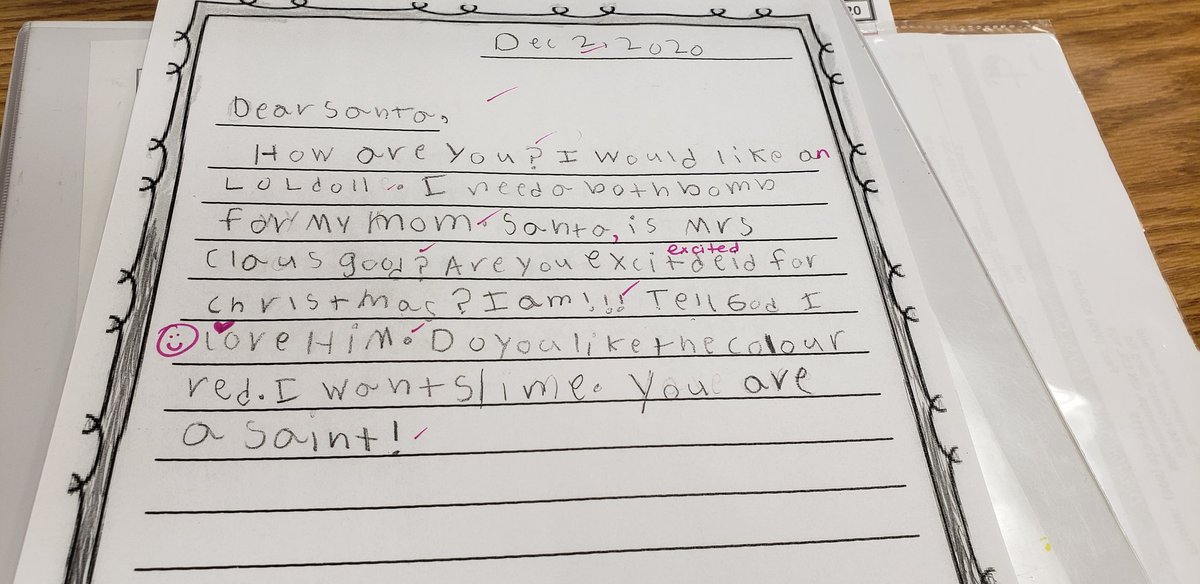 20
Dec 2, 2020
Dear Santa,
How are you? I would like an
LOL doll. I need a bath bomb
for my mom. Santa, is Mrs
excited
Claus good? Are you excitdeid for
christmas? I am!!! Tell God I
love Him. Do you like the colour
red. I want slime. You are
a saint!